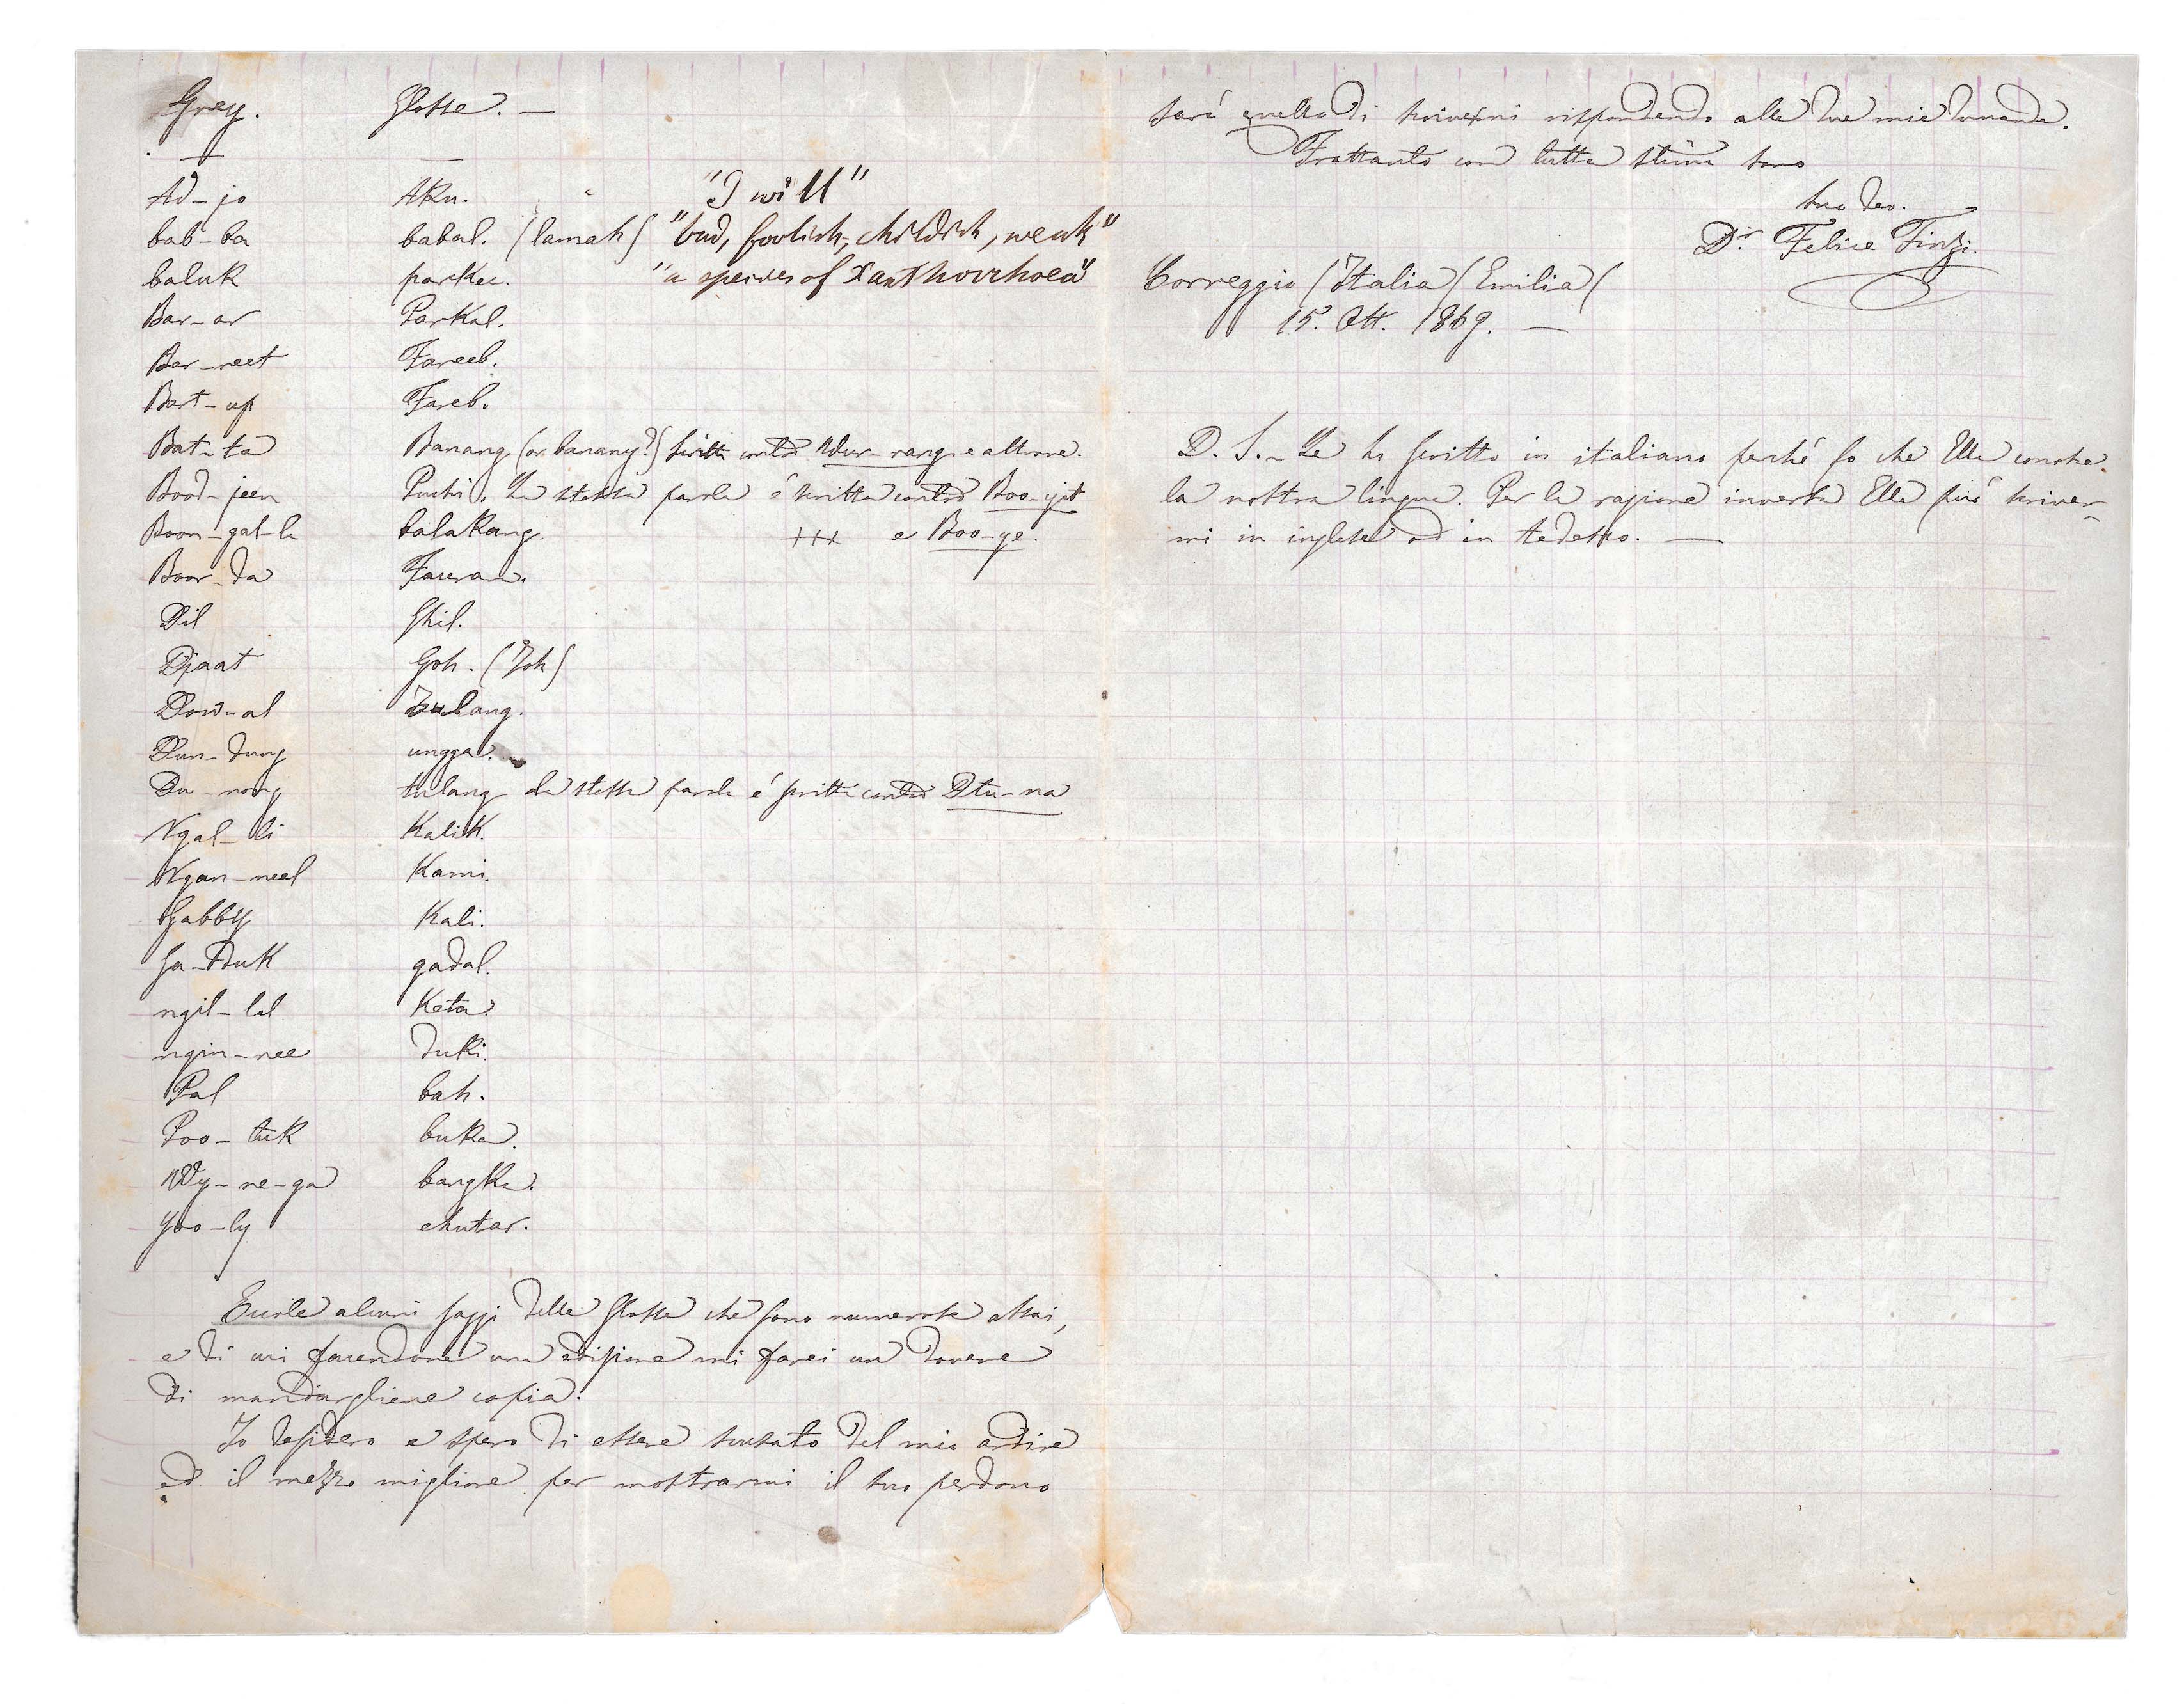 Grey. Glosse. —
Ad-jo Aku. "I will"
bab-ba babal. (lamah) "bad, foolish, childish, weak"
baluk parkee. "a species of Xanthorrhoea"
Bar-ar Parkal.
Bar-neet Fareeb.
Bart-up Fareb.
Bat-ta Banang (or banany?) scritto contro Wur-rang e altrove.
Bood-jeen Puchi. La stessa parola é scritta contro Boo-yit
Boon-gal-la balakang. +++ e Boo-ye.
Boor-da
Dil Shil.
Djaat Goh. (Joh)
Dow-al Zulang.
Dun-dung ungga.
Du-nong tulang la stessa parola é scritta contro Dtu-na
Ngal-li Kalik.
Ngan-neel Kami.
Gabby Kali.
Ga-duk gadal.
ngil-lel Keta.
ngin-nee duki.
Pal bah.
Poo-tuk buka.
Wy-ne-ga bangka.
Yoo-ly chutar.
Eccole alcuni saggi delle Glosse che sono numerose assai,
e di cui facendone una edizione mi farei un dovere
di mandargliene copia.
Io desidero e spero di essere scusato del mio ardire
ed il mezzo migliore per mostrarmi il suo perdono
sará quello di scrivermi rispondendo alle due mie domande.
Frattanto con tutta stima sono
suo dev.
Dr. Felice Finzi.
Correggio (Italia) (Emilia)
15. Ott. 1869. —
P. S. – Le ho scritto in italiano perché so che Ella conosce
la nostra lingua. Per la ragione inversa Ella puó scriver-
mi in inglese od in tedesco. —